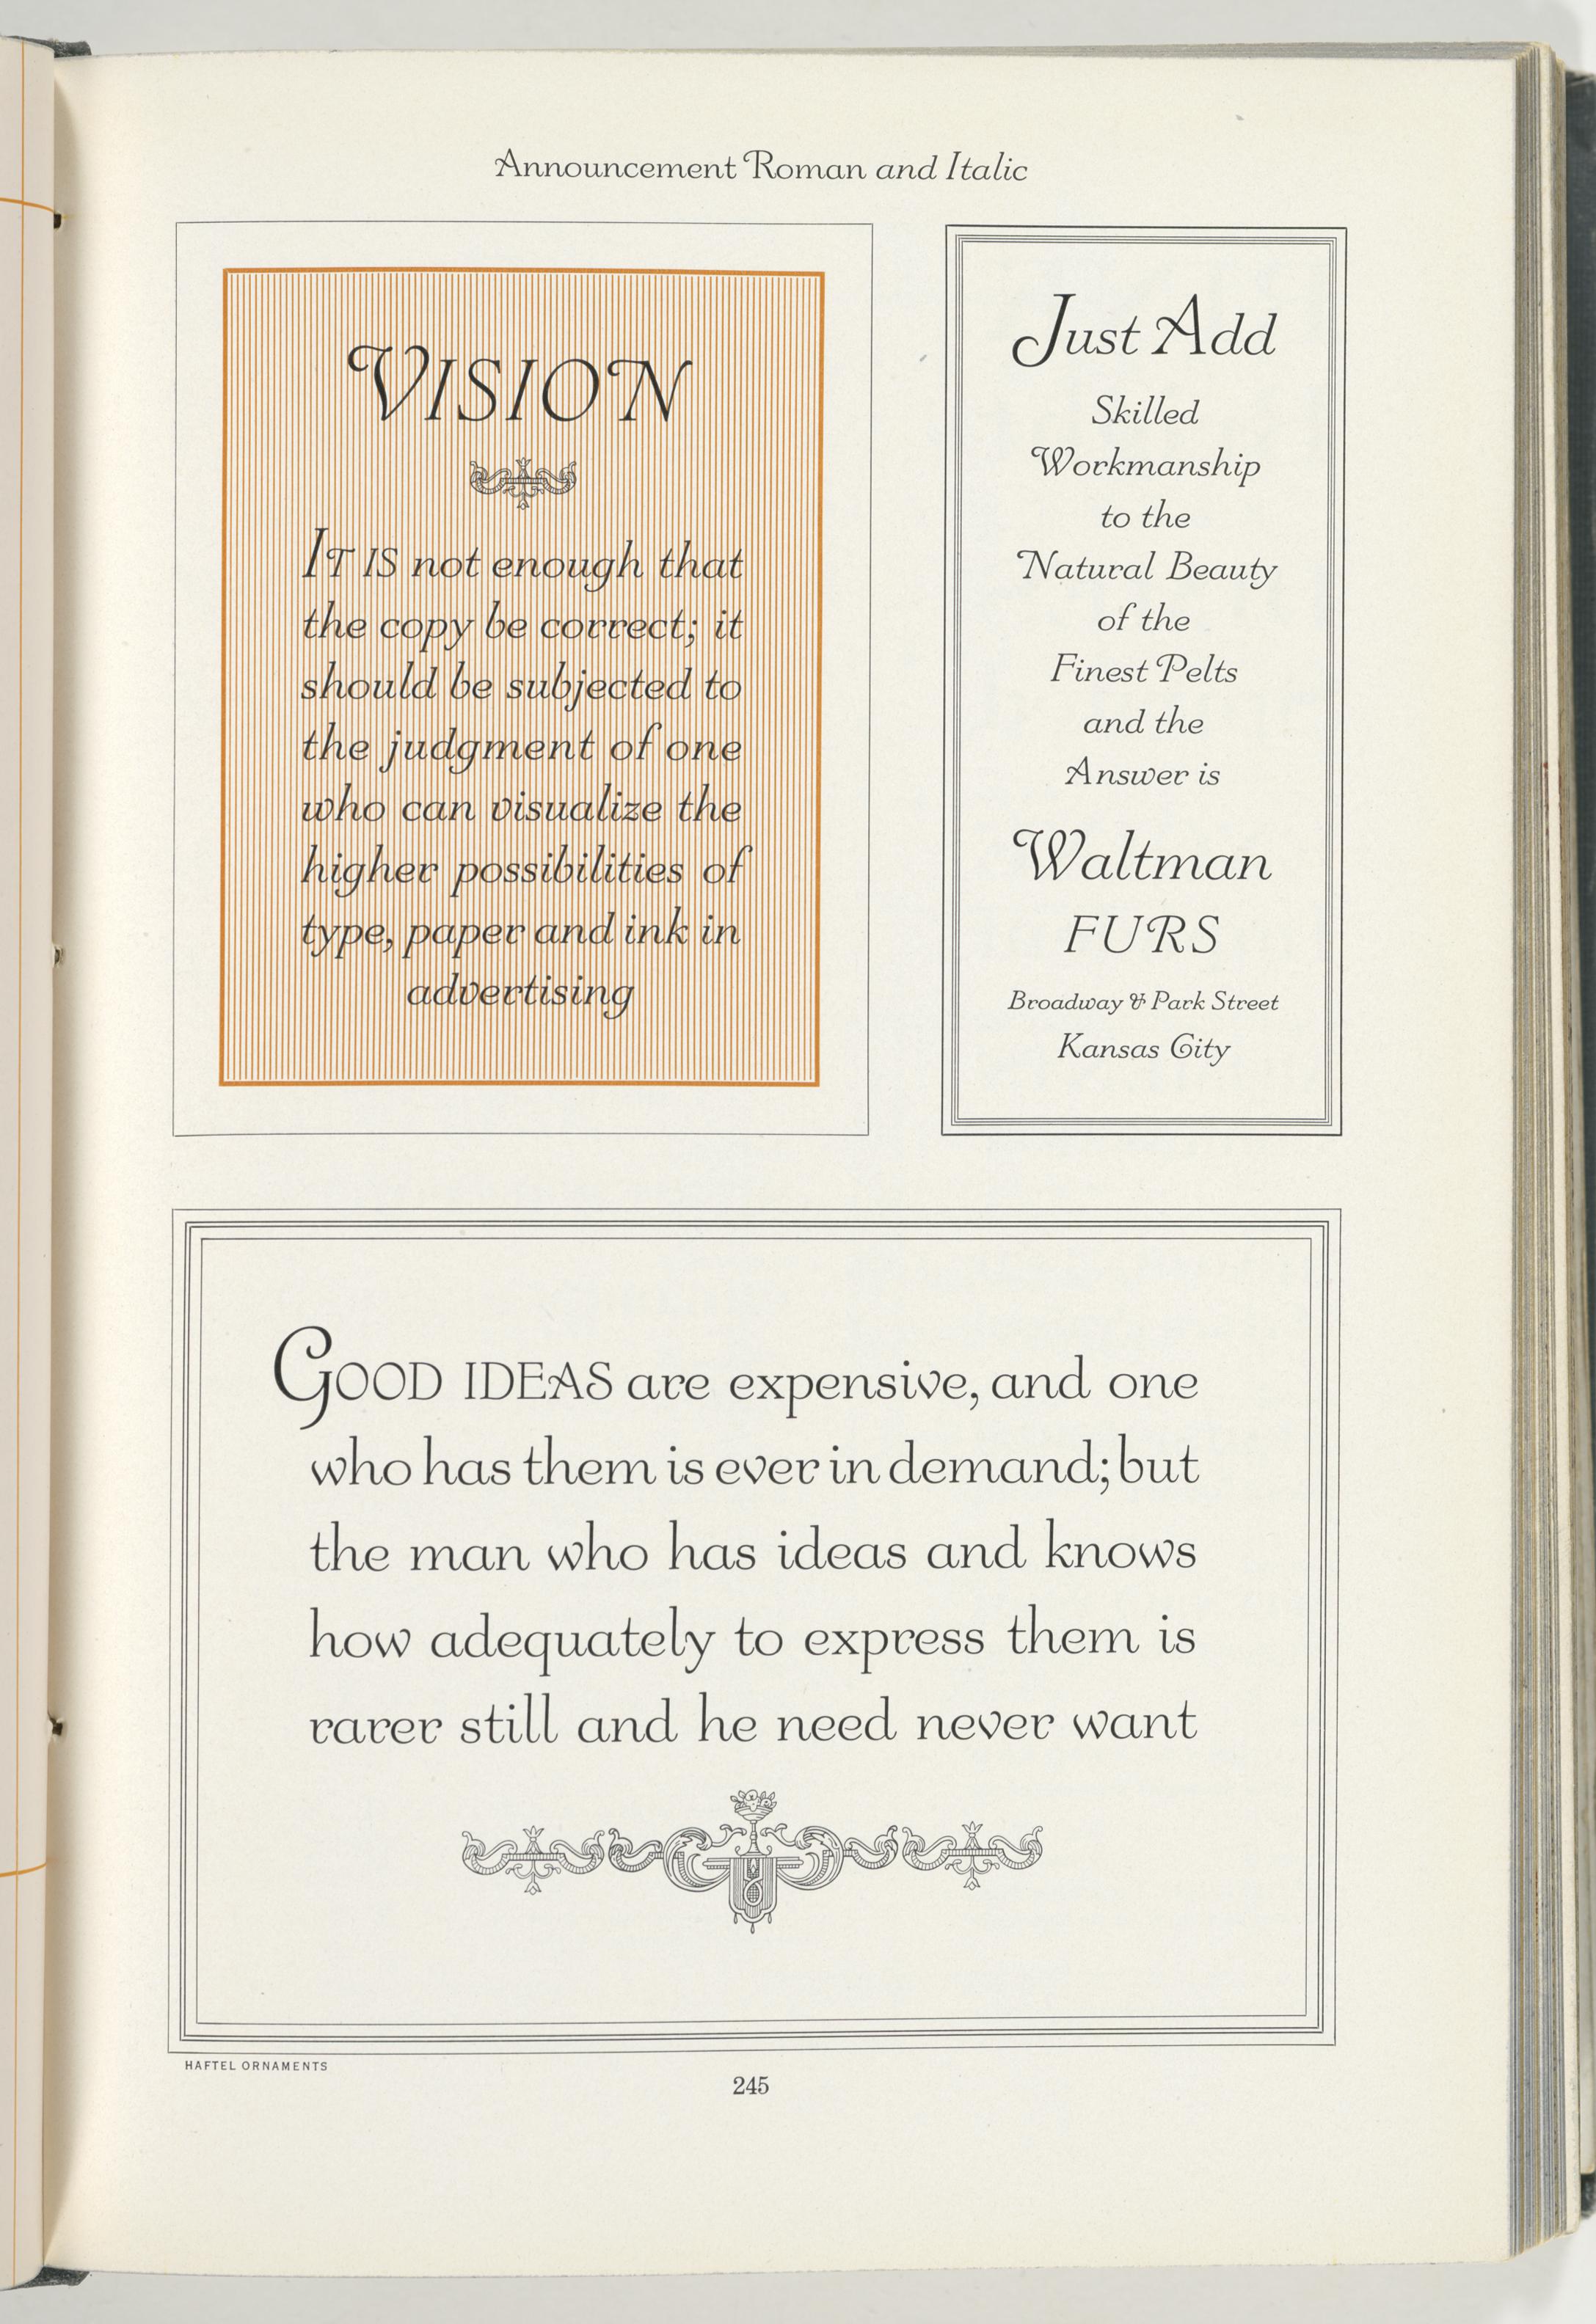 Announcement Roman and Italic
VISION
IT IS not enough that
the copy be correct; it
should be subjected to
the judgment of one
who can visualize the
higher possibilities of
type, paper and ink in
advertising
Just Add
Skilled
Workmanship
to the
Natural Beauty
of the
Finest Pelts
and the
Answer is
Waltman
FURS
Broadway & Park Street
Kansas City
GOOD IDEAS are expensive, and one
who has them is ever in demand; but
the man who has ideas and knows
how adequately to express them is
rarer still and he need never want
HAFTEL ORNAMENTS
245